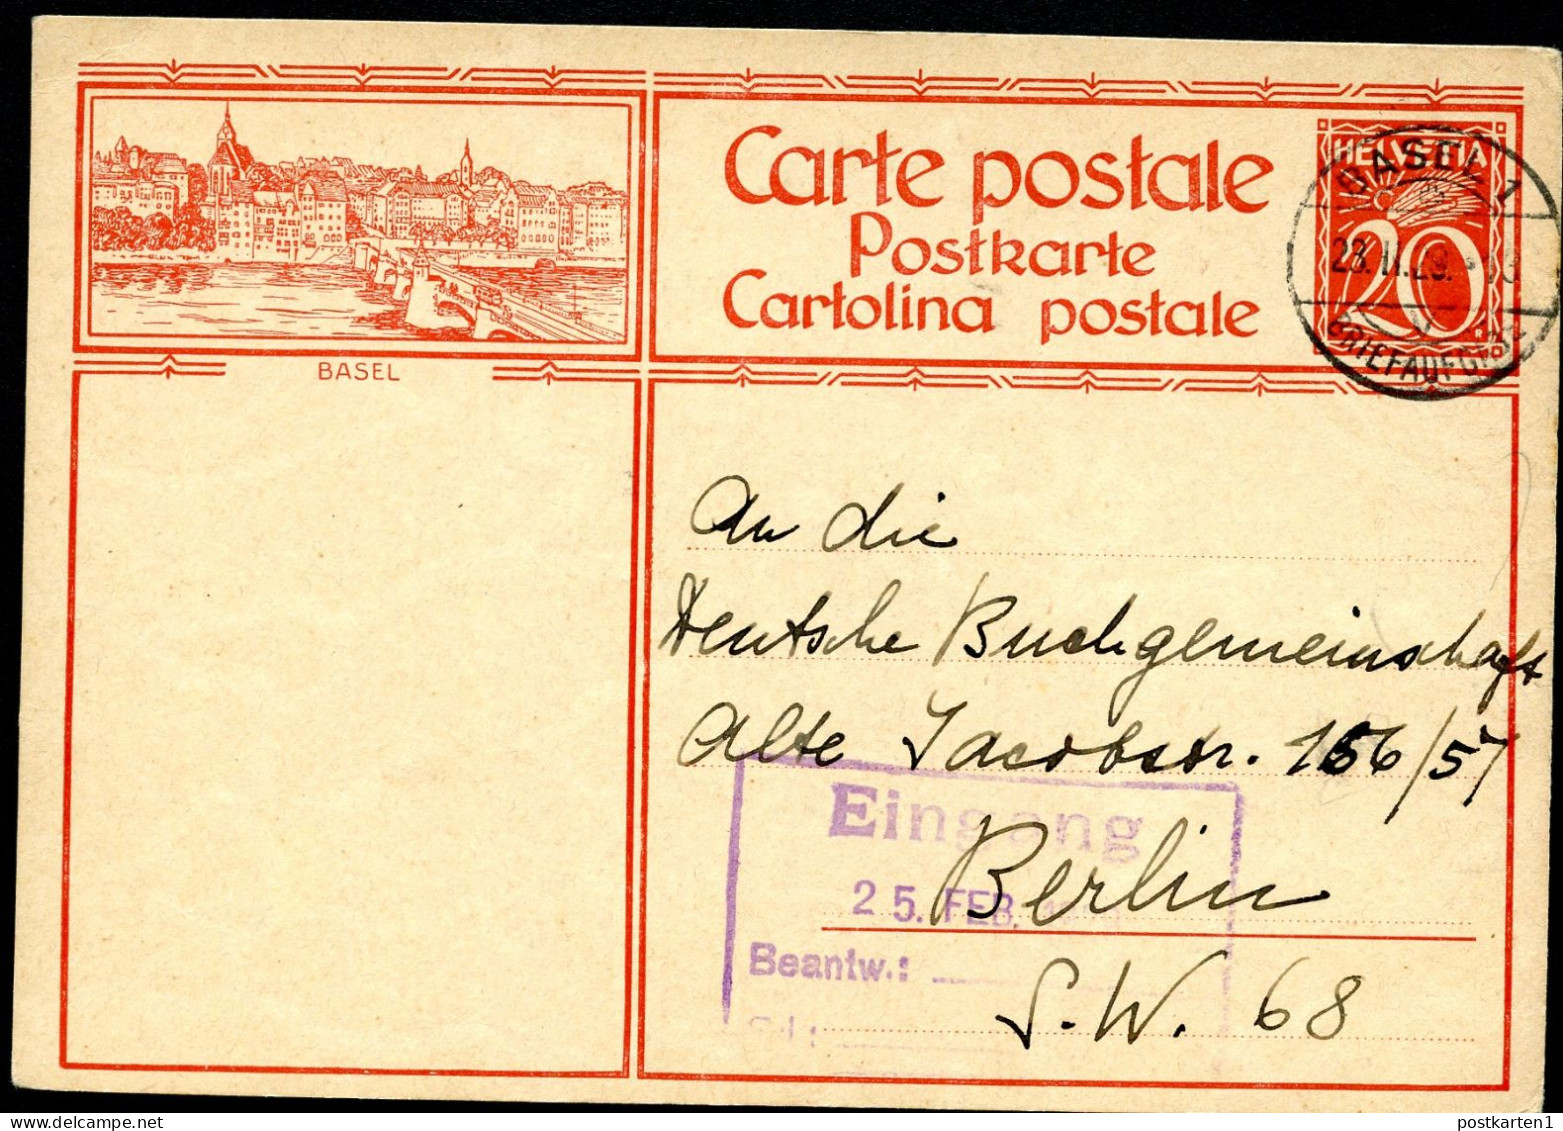 Carte postale
Postkarte
Cartolina postale
HELVETIA
20
BASEL 1
23.II.29.
BRIEFAUFGABE
BASEL
An die
Deutsche Buchgemeinschaft
Alte Jacobstr. 156/57
Eingang
25. FEB.
Berlin
Beantw.:
S.W. 68
postkarten1